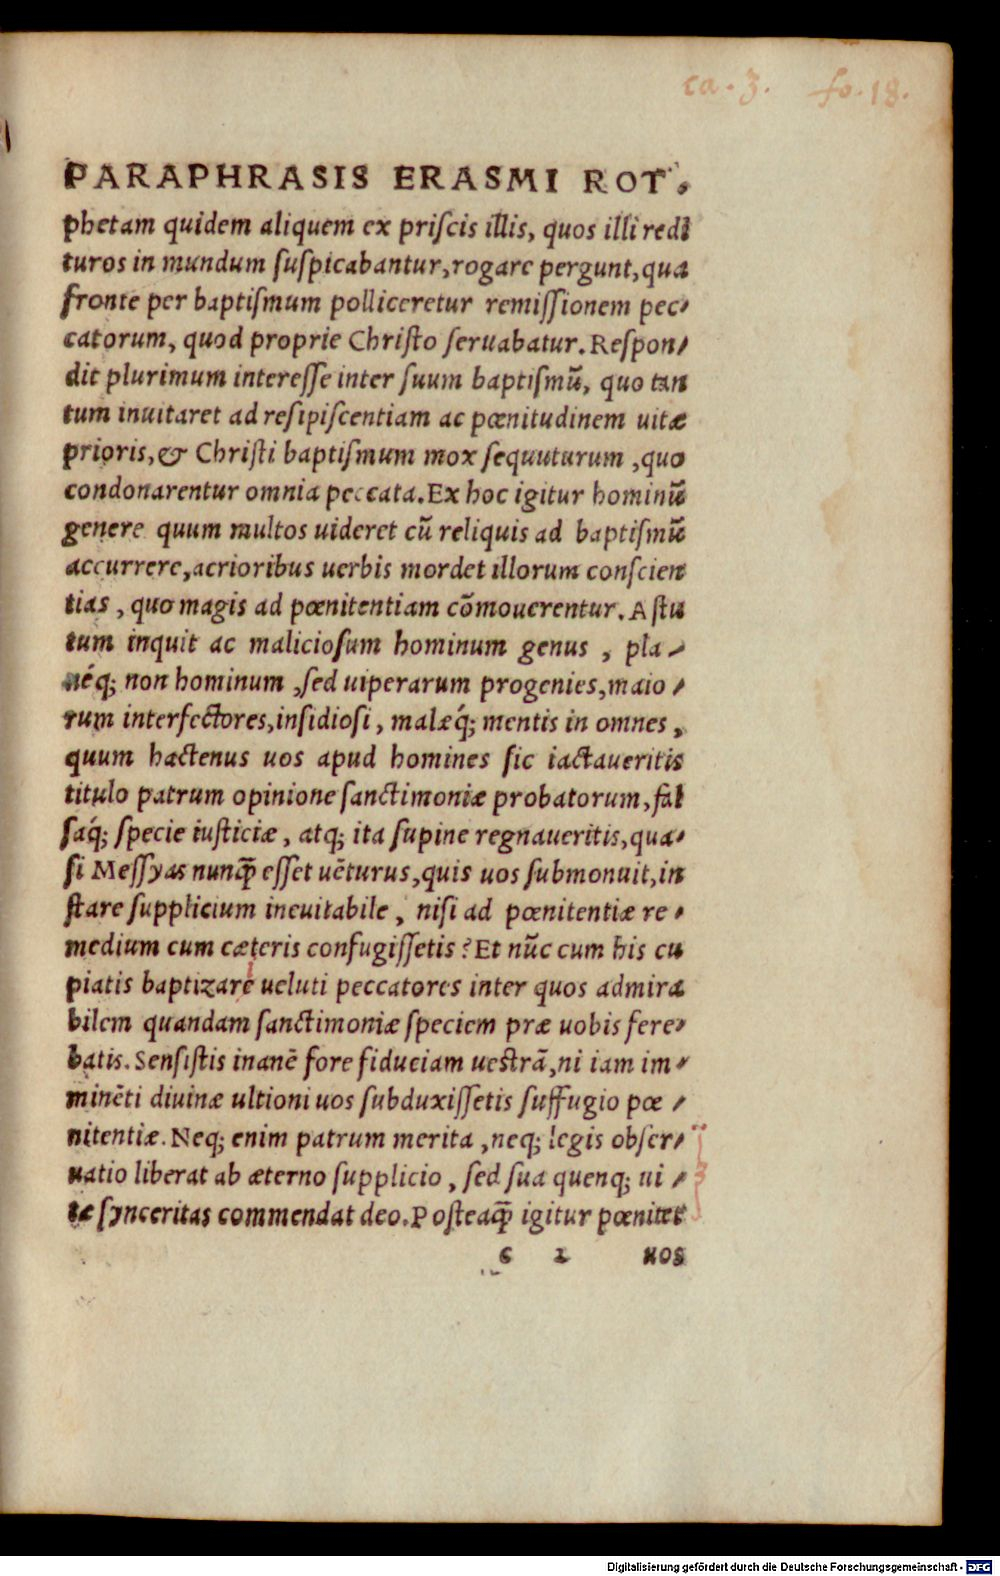 ca. 3. fo. 18.
PARAPHRASIS ERASMI ROT.
phetam quidem aliquem ex priscis illis, quos illi redi
turos in mundum suspicabantur, rogare pergunt, qua
fronte per baptismum polliceretur remissionem pec-
catorum, quod proprie Christo seruabatur. Respon-
dit plurimum interesse inter suum baptismū, quo tan
tum inuitaret ad resipiscentiam ac pœnitudinem uitæ
prioris, & Christi baptismum mox sequuturum, quo
condonarentur omnia peccata. Ex hoc igitur hominū
genere quum multos uideret cū reliquis ad baptismū
accurrere, acrioribus uerbis mordet illorum conscien
tias, quo magis ad pœnitentiam cōmouerentur. Astu
tum inquit ac maliciosum hominum genus, pla-
néq; non hominum, sed uiperarum progenies, maio-
rum interfectores, insidiosi, malæq́; mentis in omnes,
quum hactenus uos apud homines sic iactaueritis
titulo patrum opinione sanctimoniæ probatorum, fal
saq́; specie iusticiæ, atq; ita supine regnaueritis, qua-
si Messyas nunq̃ esset uēturus, quis uos submonuit, in
stare supplicium ineuitabile, nisi ad pœnitentiæ re-
medium cum cæteris confugissetis? Et nūc cum his cu
piatis baptizare ueluti peccatores inter quos admira
bilem quandam sanctimoniæ speciem præ uobis fere-
batis. Sensistis inanē fore fiduciam uestrā, ni iam im-
minēti diuinæ ultioni uos subduxissetis suffugio pœ-
nitentiæ. Neq; enim patrum merita, neq; legis obser-
uatio liberat ab æterno supplicio, sed sua quenq; ui-
tæ synceritas commendat deo. Posteaq̃ igitur pœnitet
c 2 uos
Digitalisierung gefördert durch die Deutsche Forschungsgemeinschaft - DFG